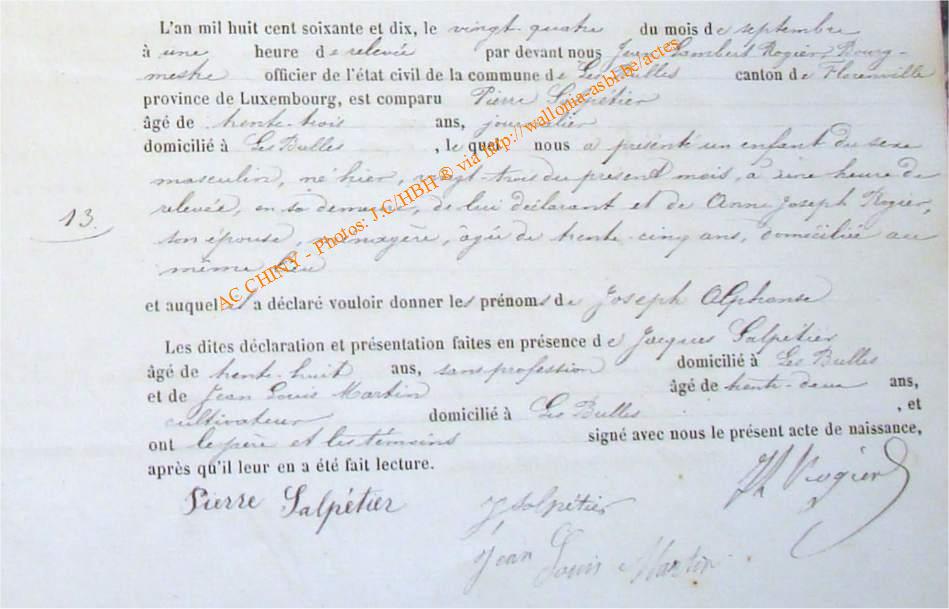 L'an mil huit cent soixante et dix, le vingt-quatre du mois de septembre
à une heure de relevée par devant nous Jean Lambert Rogier, Bourg-
mestre officier de l'état civil de la commune de Les Bulles canton de Florenville
province de Luxembourg, est comparu Pierre Salpétier
âgé de trente-trois ans, journalier
domicilié à Les Bulles , lequel nous a présenté un enfant du sexe
masculin, né hier, vingt-trois du présent mois, à une heure de
relevée, en sa demeure, de lui déclarant et de Anne Joseph Rogier,
13.
son épouse, ménagère, âgée de trente-cinq ans, domiciliée au
même lieu
et auquel il a déclaré vouloir donner les prénoms de Joseph Alphonse
Les dites déclaration et présentation faites en présence de Jacques Salpétier
âgé de trente-huit ans, sans profession domicilié à Les Bulles
et de Jean Louis Martin âgé de trente-deux ans,
cultivateur domicilié à Les Bulles , et
ont le père et les témoins signé avec nous le présent acte de naissance,
après qu'il leur en a été fait lecture.
Pierre Salpétier J Salpétier JL Rogier
Jean Louis Martin
AC CHINY - Photos: J.C/HBH ® via http://wallonia-asbl.be/actes